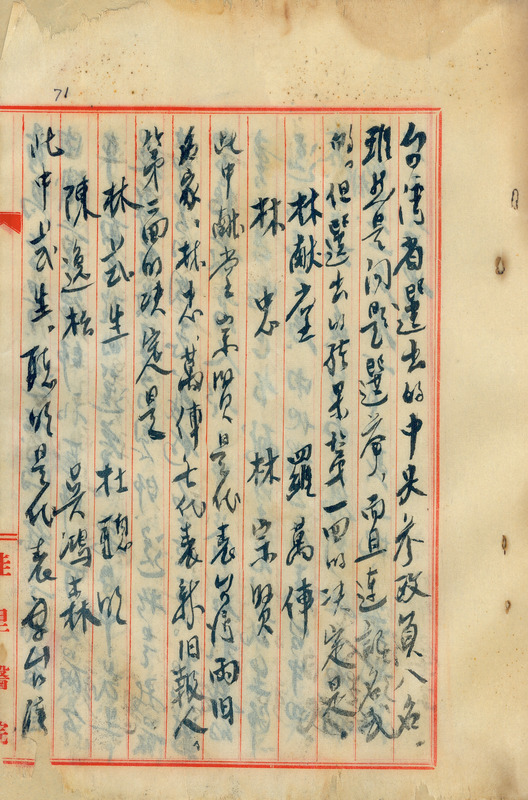 71
台湾省選出的中央参政員八名。
雖然是问題選挙，而且連記名式
的。但選出的結果於第一回的决定是、
林献堂　羅萬俥
林　忠　林宗賢
此中献堂宗賢是代表台湾两旧
名家、林忠、萬俥士代表新旧報人。
第二回的决定是
林式生　杜聰明
陳逸松　吳鴻森
此中式生、聰明是代表
醫院